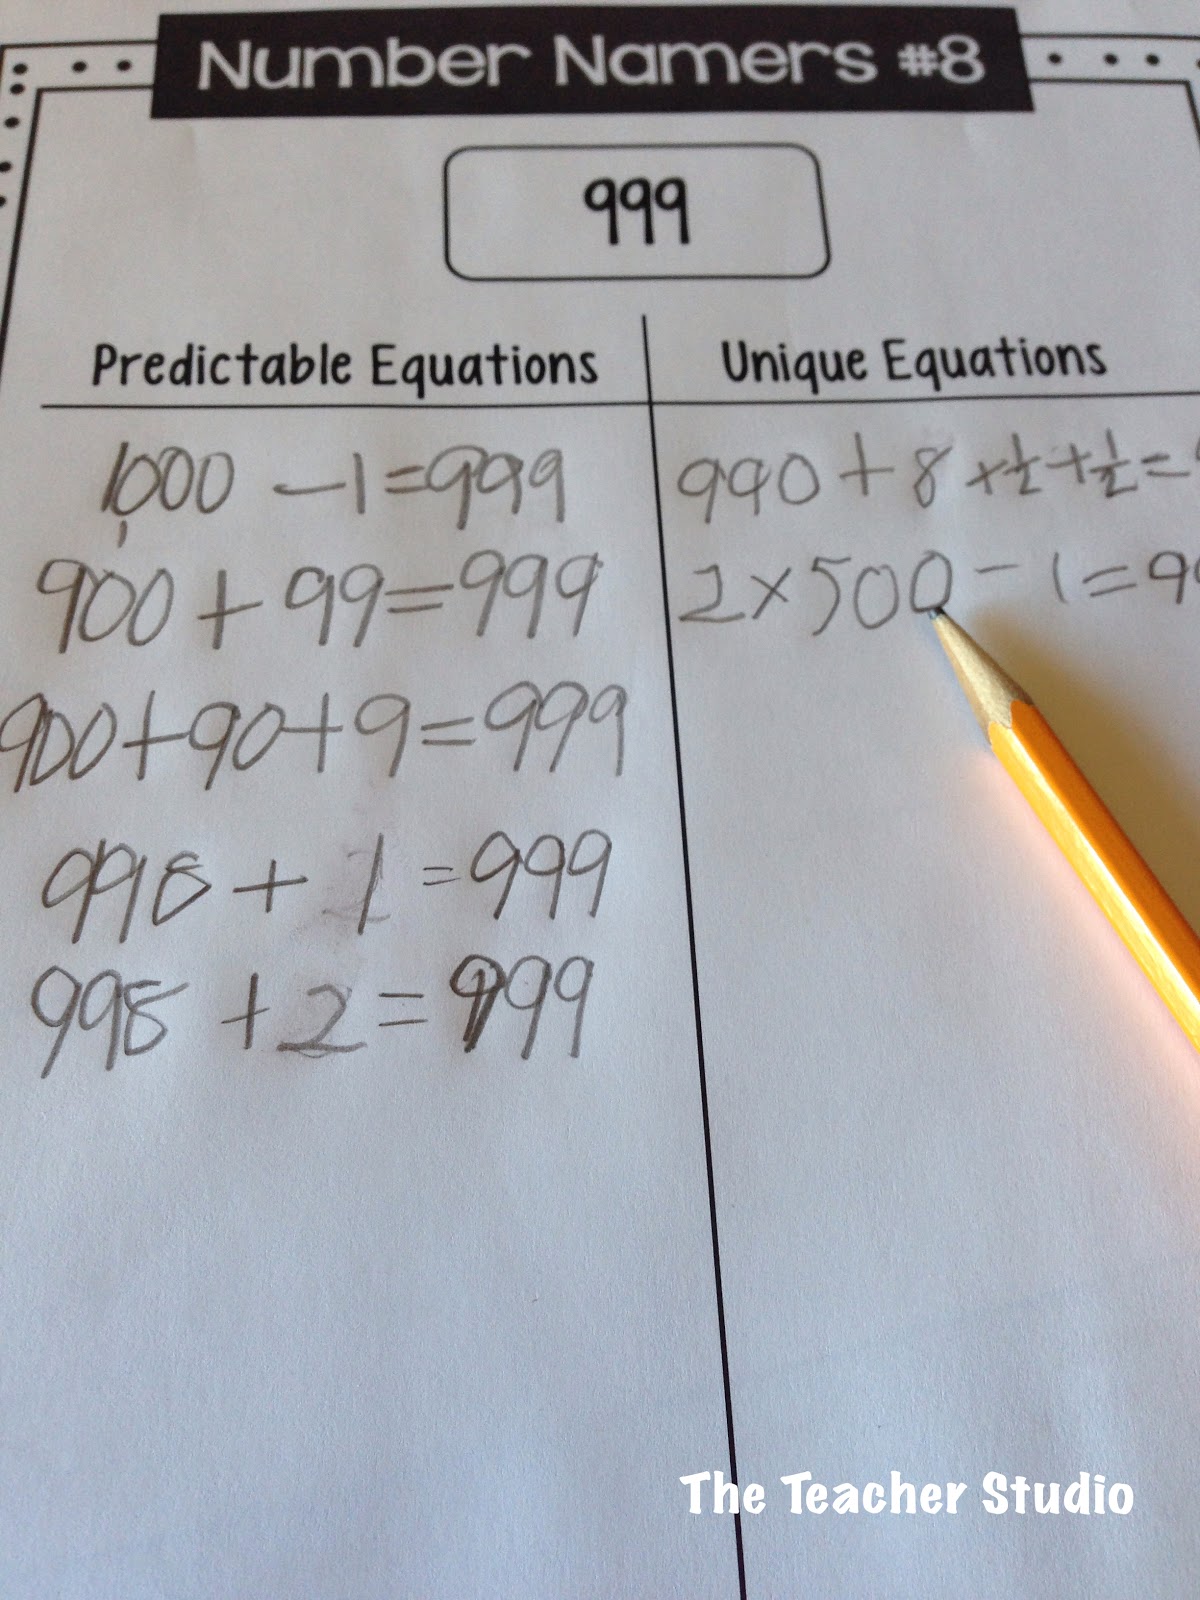 Number Namers #8
999
Predictable Equations
Unique Equations
1,000 - 1 = 999
900 + 99 = 999
900 + 90 + 9 = 999
998 + 1 = 999
998 + 2 = 999
990 + 8 + ½ + ½ =
2 × 500 - 1 = 99
The Teacher Studio